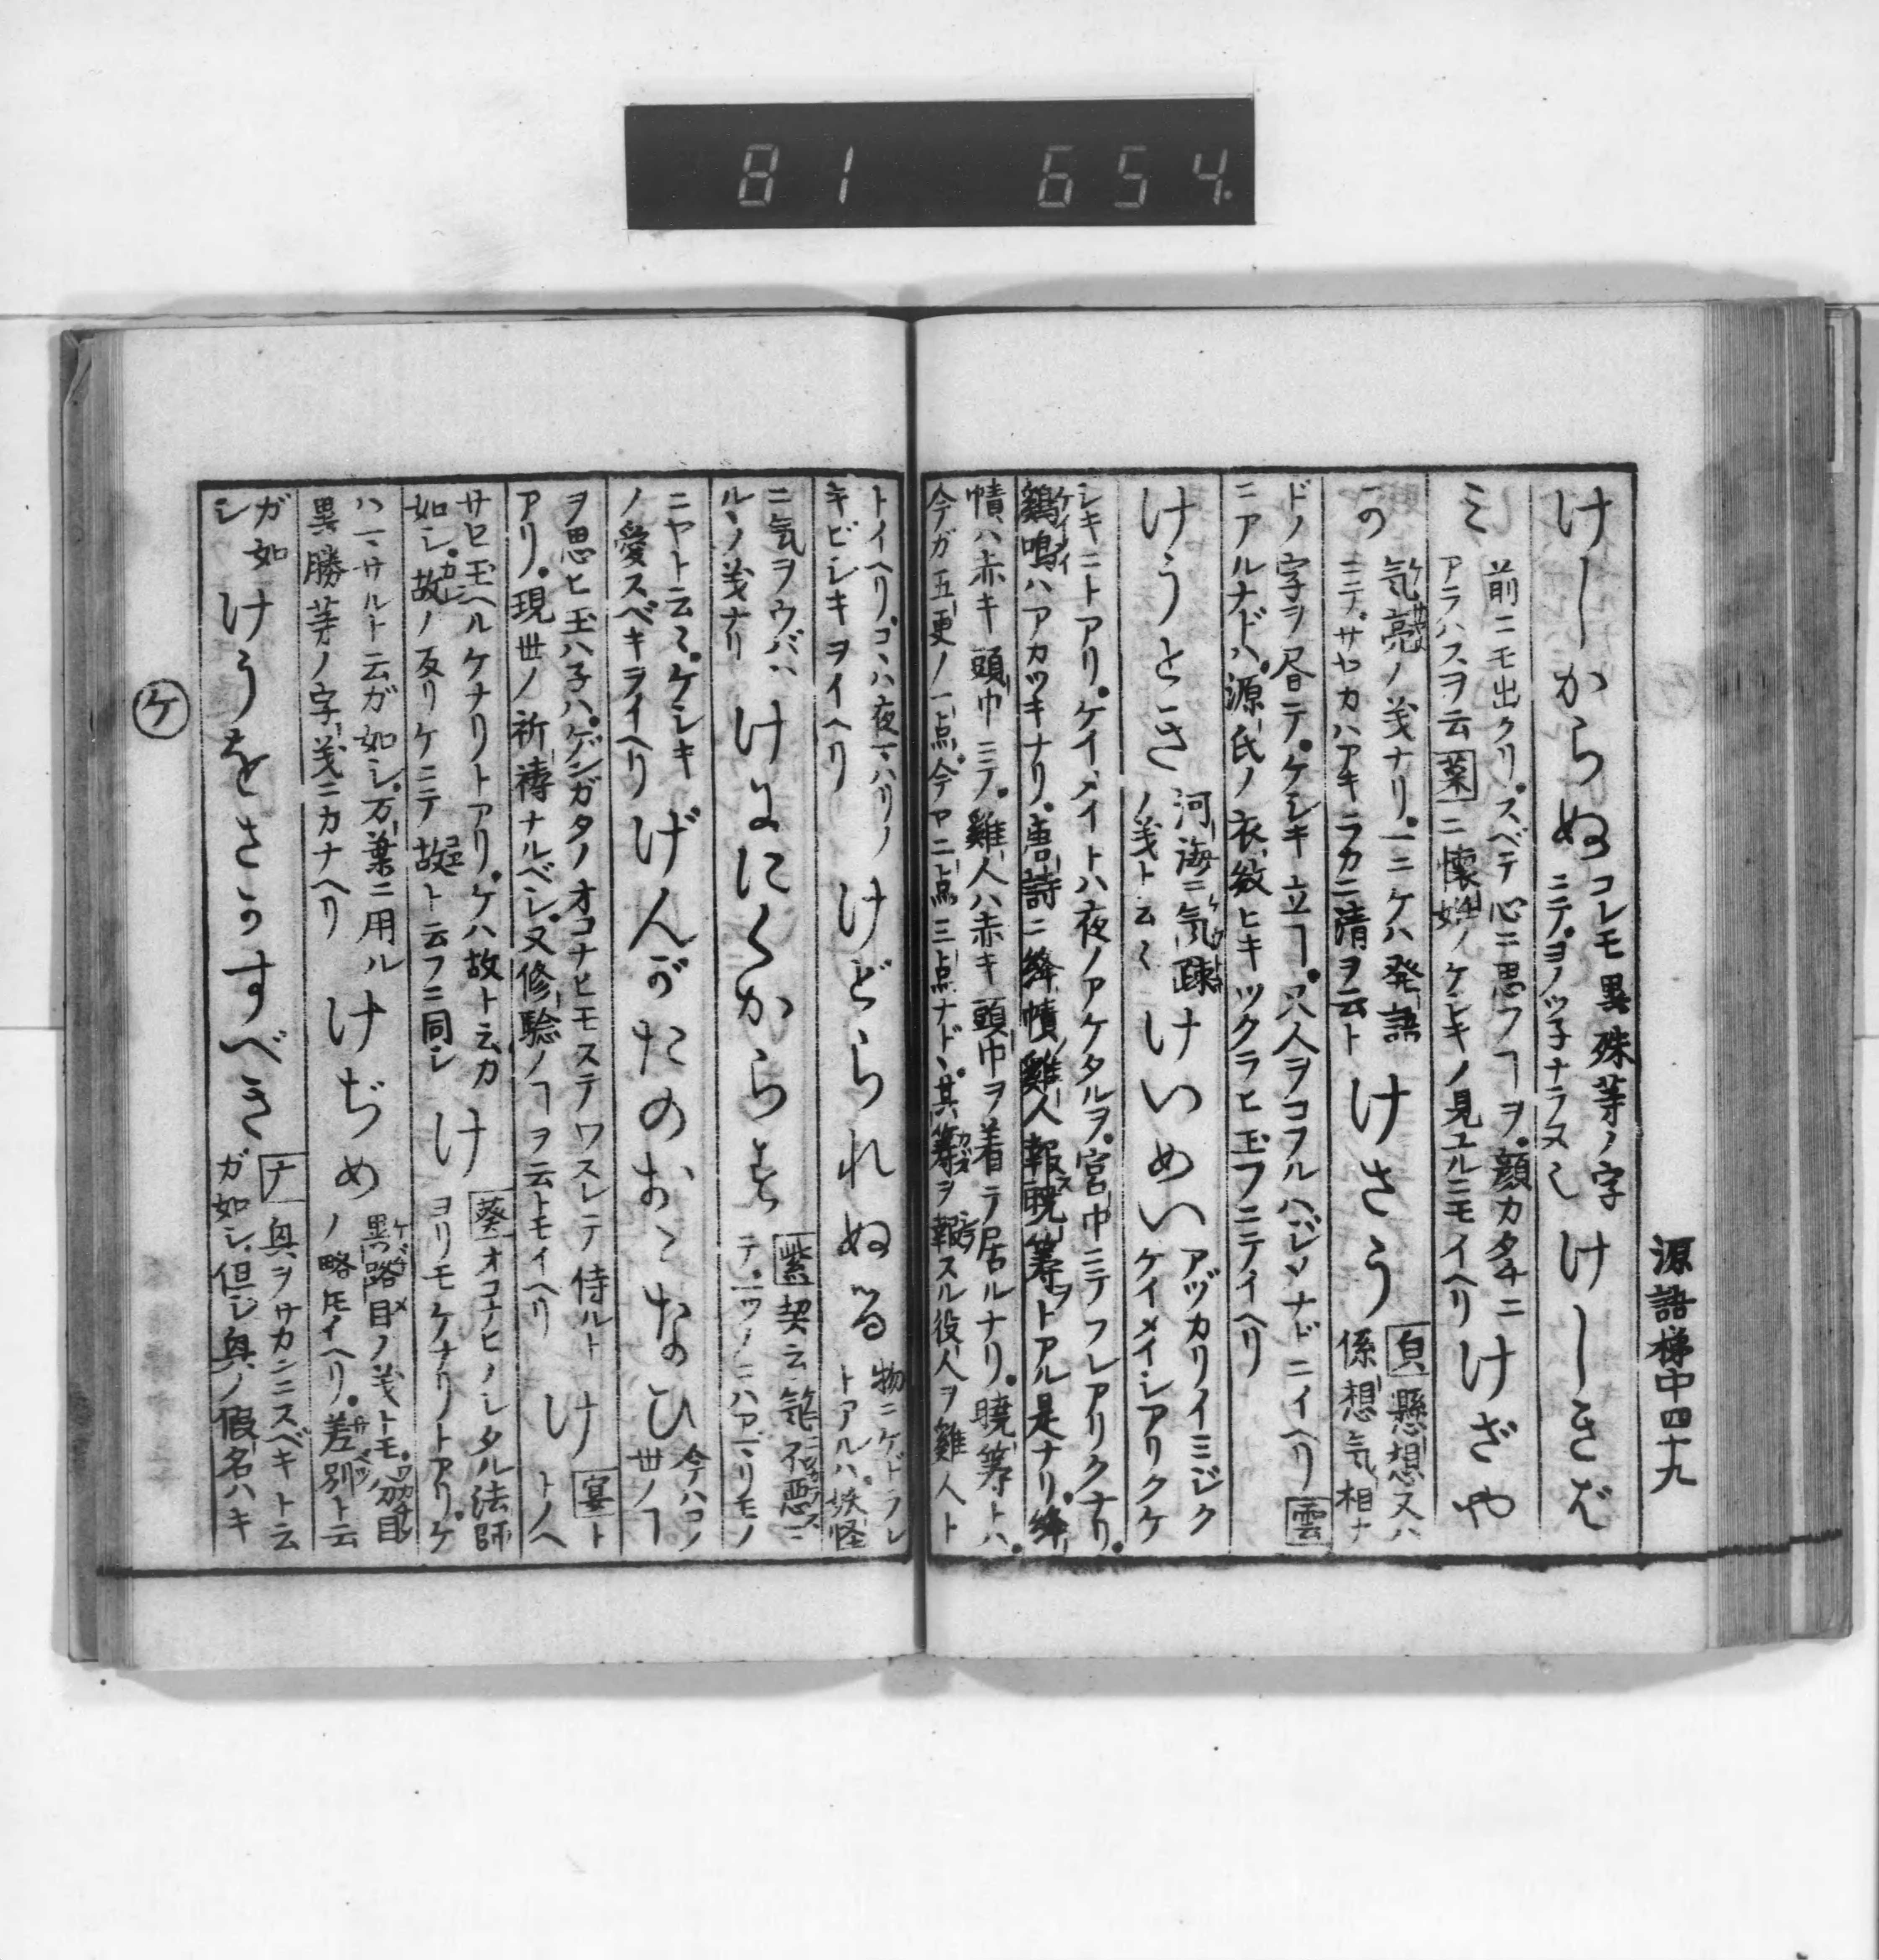 81 654
源語梯中四十九
けしからぬ
コレモ異殊等ノ字
ニテ。ヨノツ子ナラヌ也
けしきば
み
前ニモ出タリ。スベテ心ニ思フヿヲ。顔カタチニ
アラハスヲ云
葉
ニ懐妊ノケシキノ見ユルニモイヘリ
けざや
か
気亮ノ義ナリ。一ニケハ発語
ニテ。サヤカハアキラカニ清ヲ云ト
けさう
懸想又ハ
係想気相ナ
ドノ字ヲ音テ。ケシキ立ヿ。只人ヲコフルハジメナドニイヘリ
雲
ニアルナドハ。源氏ノ衣紋ヒキツクラヒ玉フニテイヘリ
けうとき
河海ニ気疎
ノ義ト云々
けいめい
アヅカリイミジク
ケイメイシアリクケ
シキニトアリ。ケイメイトハ夜ノアケタルヲ。宮中ニテフレアリクナリ。
鶏鳴ハアカツキナリ。唐詩ニ絳幘雞人報暁籌トアル是ナリ。絳
幘ハ赤キ頭巾ニテ。雞人ハ赤キ頭巾ヲ着テ居ルナリ。暁籌トハ。
今ガ五更ノ一点。今ヤ二点三点ナド。其籌ヲ報スル役人ヲ雞人ト
トイヘリ。コヽハ夜マハリノ
キビシキヲイヘリ
けどられぬる
物ニケドラレ
トアルハ。妖怪
ニ気ヲウバハ
ルヽノ義ナリ
けにくからず
紫
契云気不悪ニ
ニヤト云々。ケシキ
ノ愛スベキヲイヘリ
げんがたのおこなひ
今ハコノ
世ノヿ
ヲ思ヒ玉ハ子ハ。ゲンガタノオコナヒモステワスレテ侍ルト
アリ。現世ノ祈祷ナルベシ。又修験ノヿヲ云トモイヘリ
け
宴
ト
トノヘ
サセ玉ヘルケナリトアリ。ケハ故ト云カ
如シ。故ノ反リケニテ故ト云フニ同シ
け
葵
オコナヒノシタル法師
ヨリモケナリトアリ。ケ
ハマサルト云ガ如シ。万葉ニ用ル
異勝等ノ字義ニカナヘリ
けぢめ
異路目ノ義トモ。分目
ノ略トモイヘリ。差別ト云
ガ如
シ
けうをさかすべき
ナ
興ヲサカンニスベキト云
ガ如シ。但シ興ノ假名ハキ
ケ